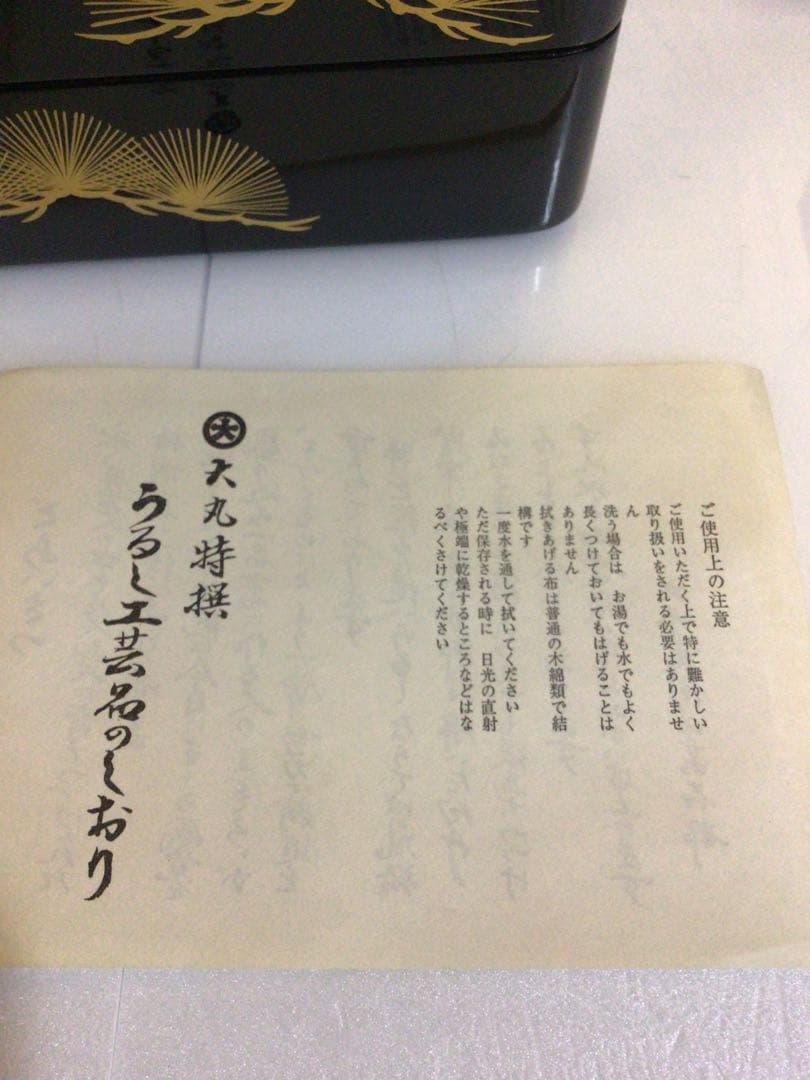 ご使用上の注意
ご使用いただく上で特に難かしい
取り扱いをされる必要はありませ
ん
洗う場合は　お湯でも水でもよく
長くつけておいてもはげることは
ありません
拭きあげる布は普通の木綿類で結
構です
一度水を通して拭いてください
ただ保存される時に　日光の直射
や極端に乾燥するところなどはな
るべくさけてください
大 大丸特撰
うるし工芸品のしおり